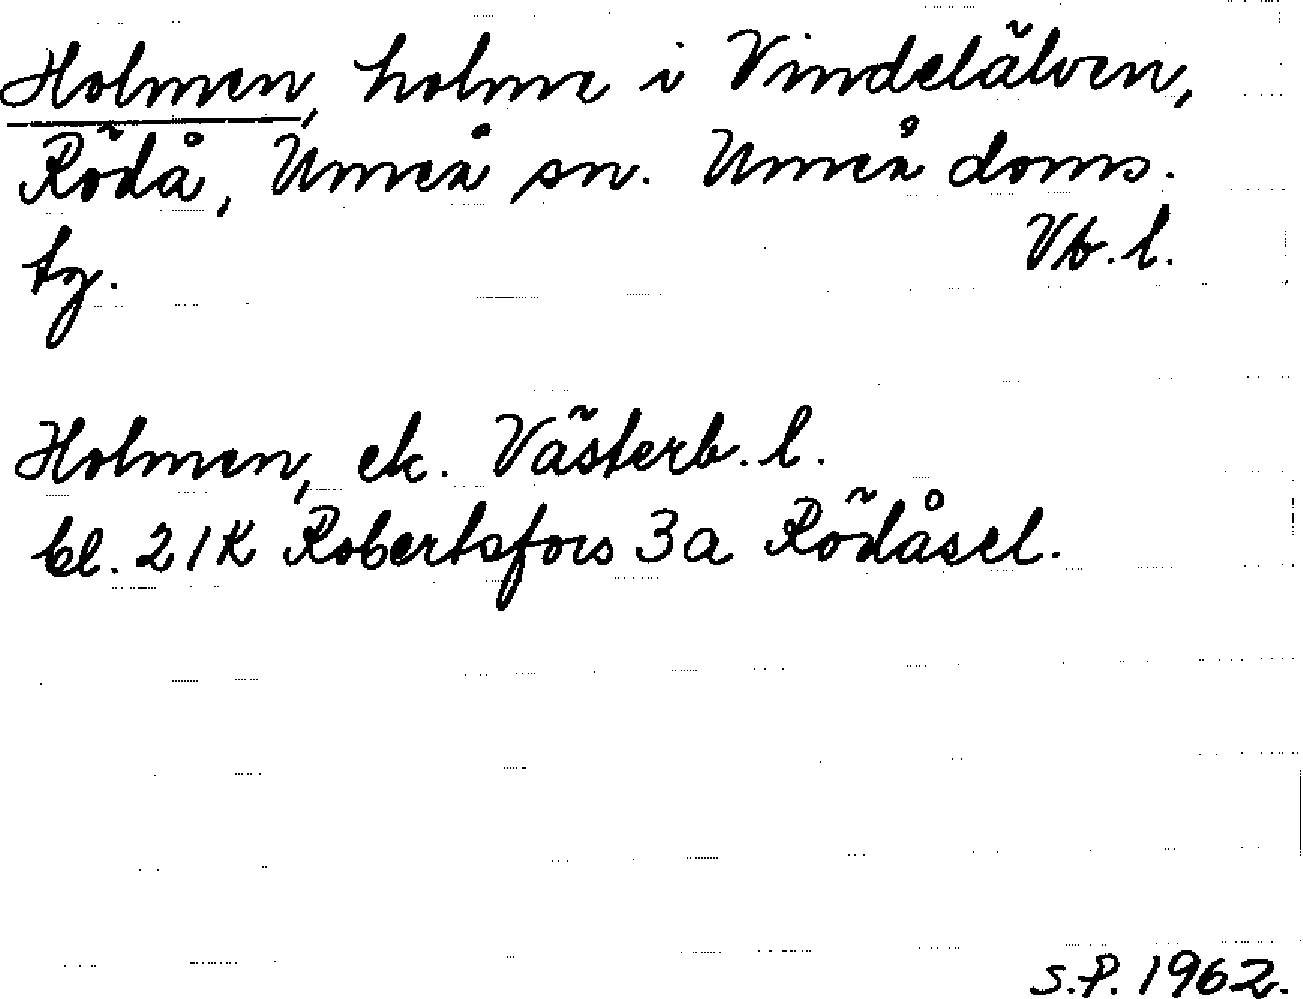 Holmen, holme i Vindelälven,
Rödå, Umeå sn. Umeå doms.
tg. Vb.l.
Holmen, ek. Västerb.l.
bl. 21K Robertsfors 3a Rödåsel.
S.P. 1962.